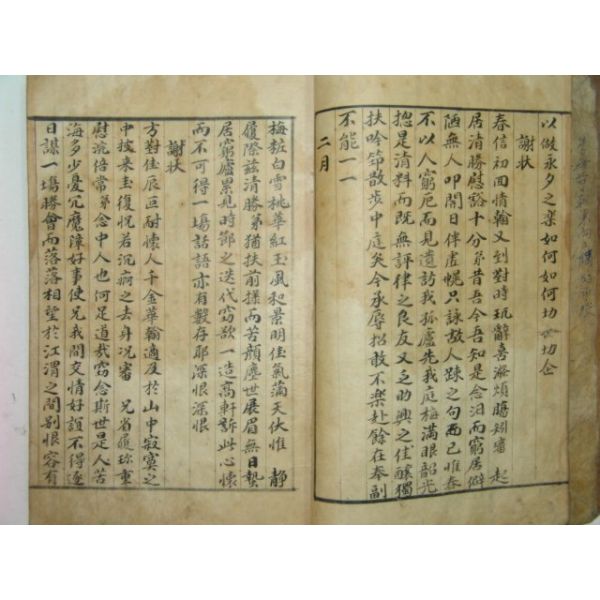 以做永夕之樂如何如何切企切企
謝狀
春信初回情翰又到對時玩辭喜滌煩賜矧審 起
居清勝慰豁十分弟昔吾今吾知是念汨而窮居僻
陋無人叩閽日伴虛幌只詠故人踈之句而已惟春
不以人窮厄而見遺訪我孤盧先我庭梅滿眼韶光
揔是清料而既無評律之良友又乏助興之佳釀獨
扶吟笻散步中庭矣今承辱招敢不樂赴餘在奉副
不能一一
二月
梅粧白雪桃華紅玉風和景明佳氣滿天伏惟 静
履際玆清勝弟猶扶前操而苦顔塵世展眉無日蟄
居窮廬累見時節之迭代竊欲一造高軒訴此心懷
而不可得一場話語亦有數存耶深恨深恨
謝狀
方對佳辰叵耐懷人千金華翰適及於山中寂寞之
中披來圭復怳若沉痾之去身况審 兄省履珎重
慰浣倍常弟念中人也何足道哉窃念斯世是人苦
海多少憂冗魔障好事使兄我間交情好誼不得逐
日謀一場勝會而落落相望於江渭之間别恨容有